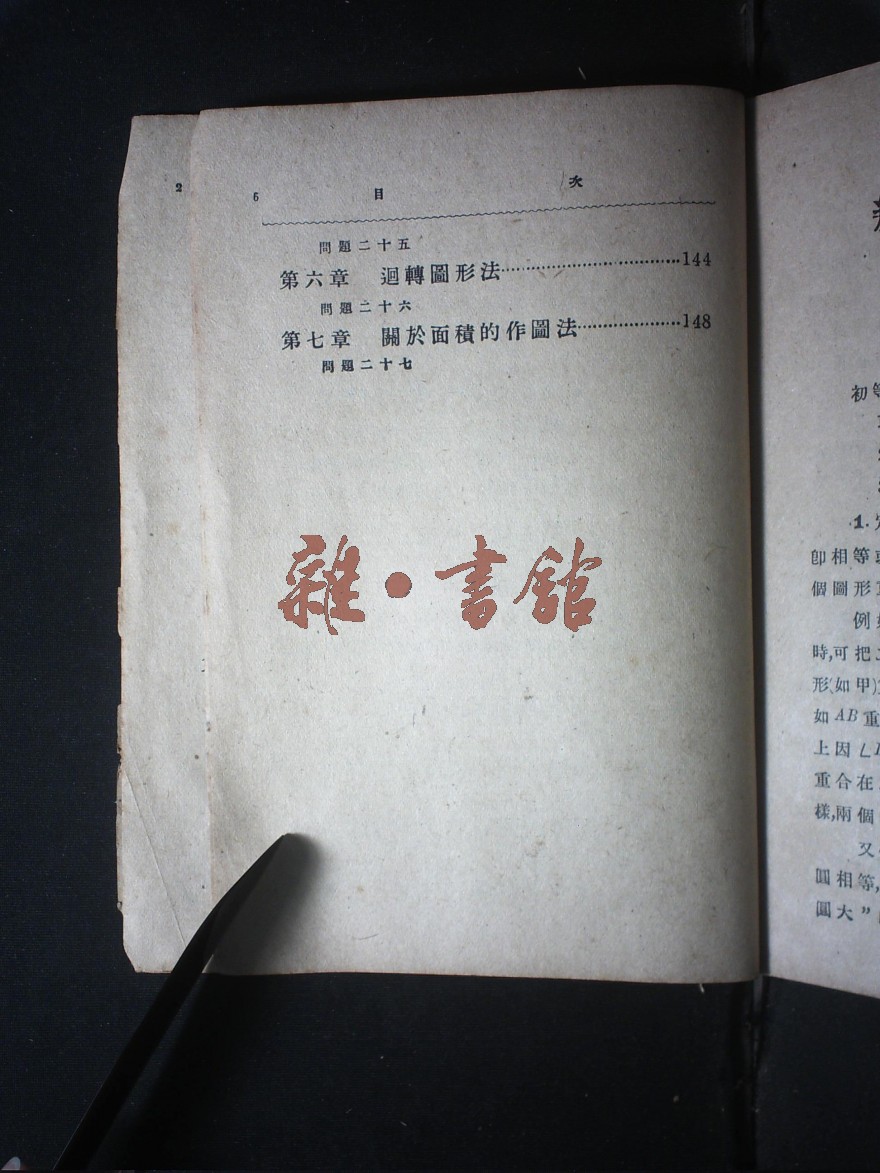 2
6 目 次
問題二十五
第六章 迴轉圖形法……………………144
問題二十六
第七章 關於面積的作圖法……………148
問題二十七
雜·書館
初等
1.
卽相等
個圖形
例
時,可把
形(如甲)
如AB重
上因∠
重合在
樣,兩個
又
圓相等,
圓大”